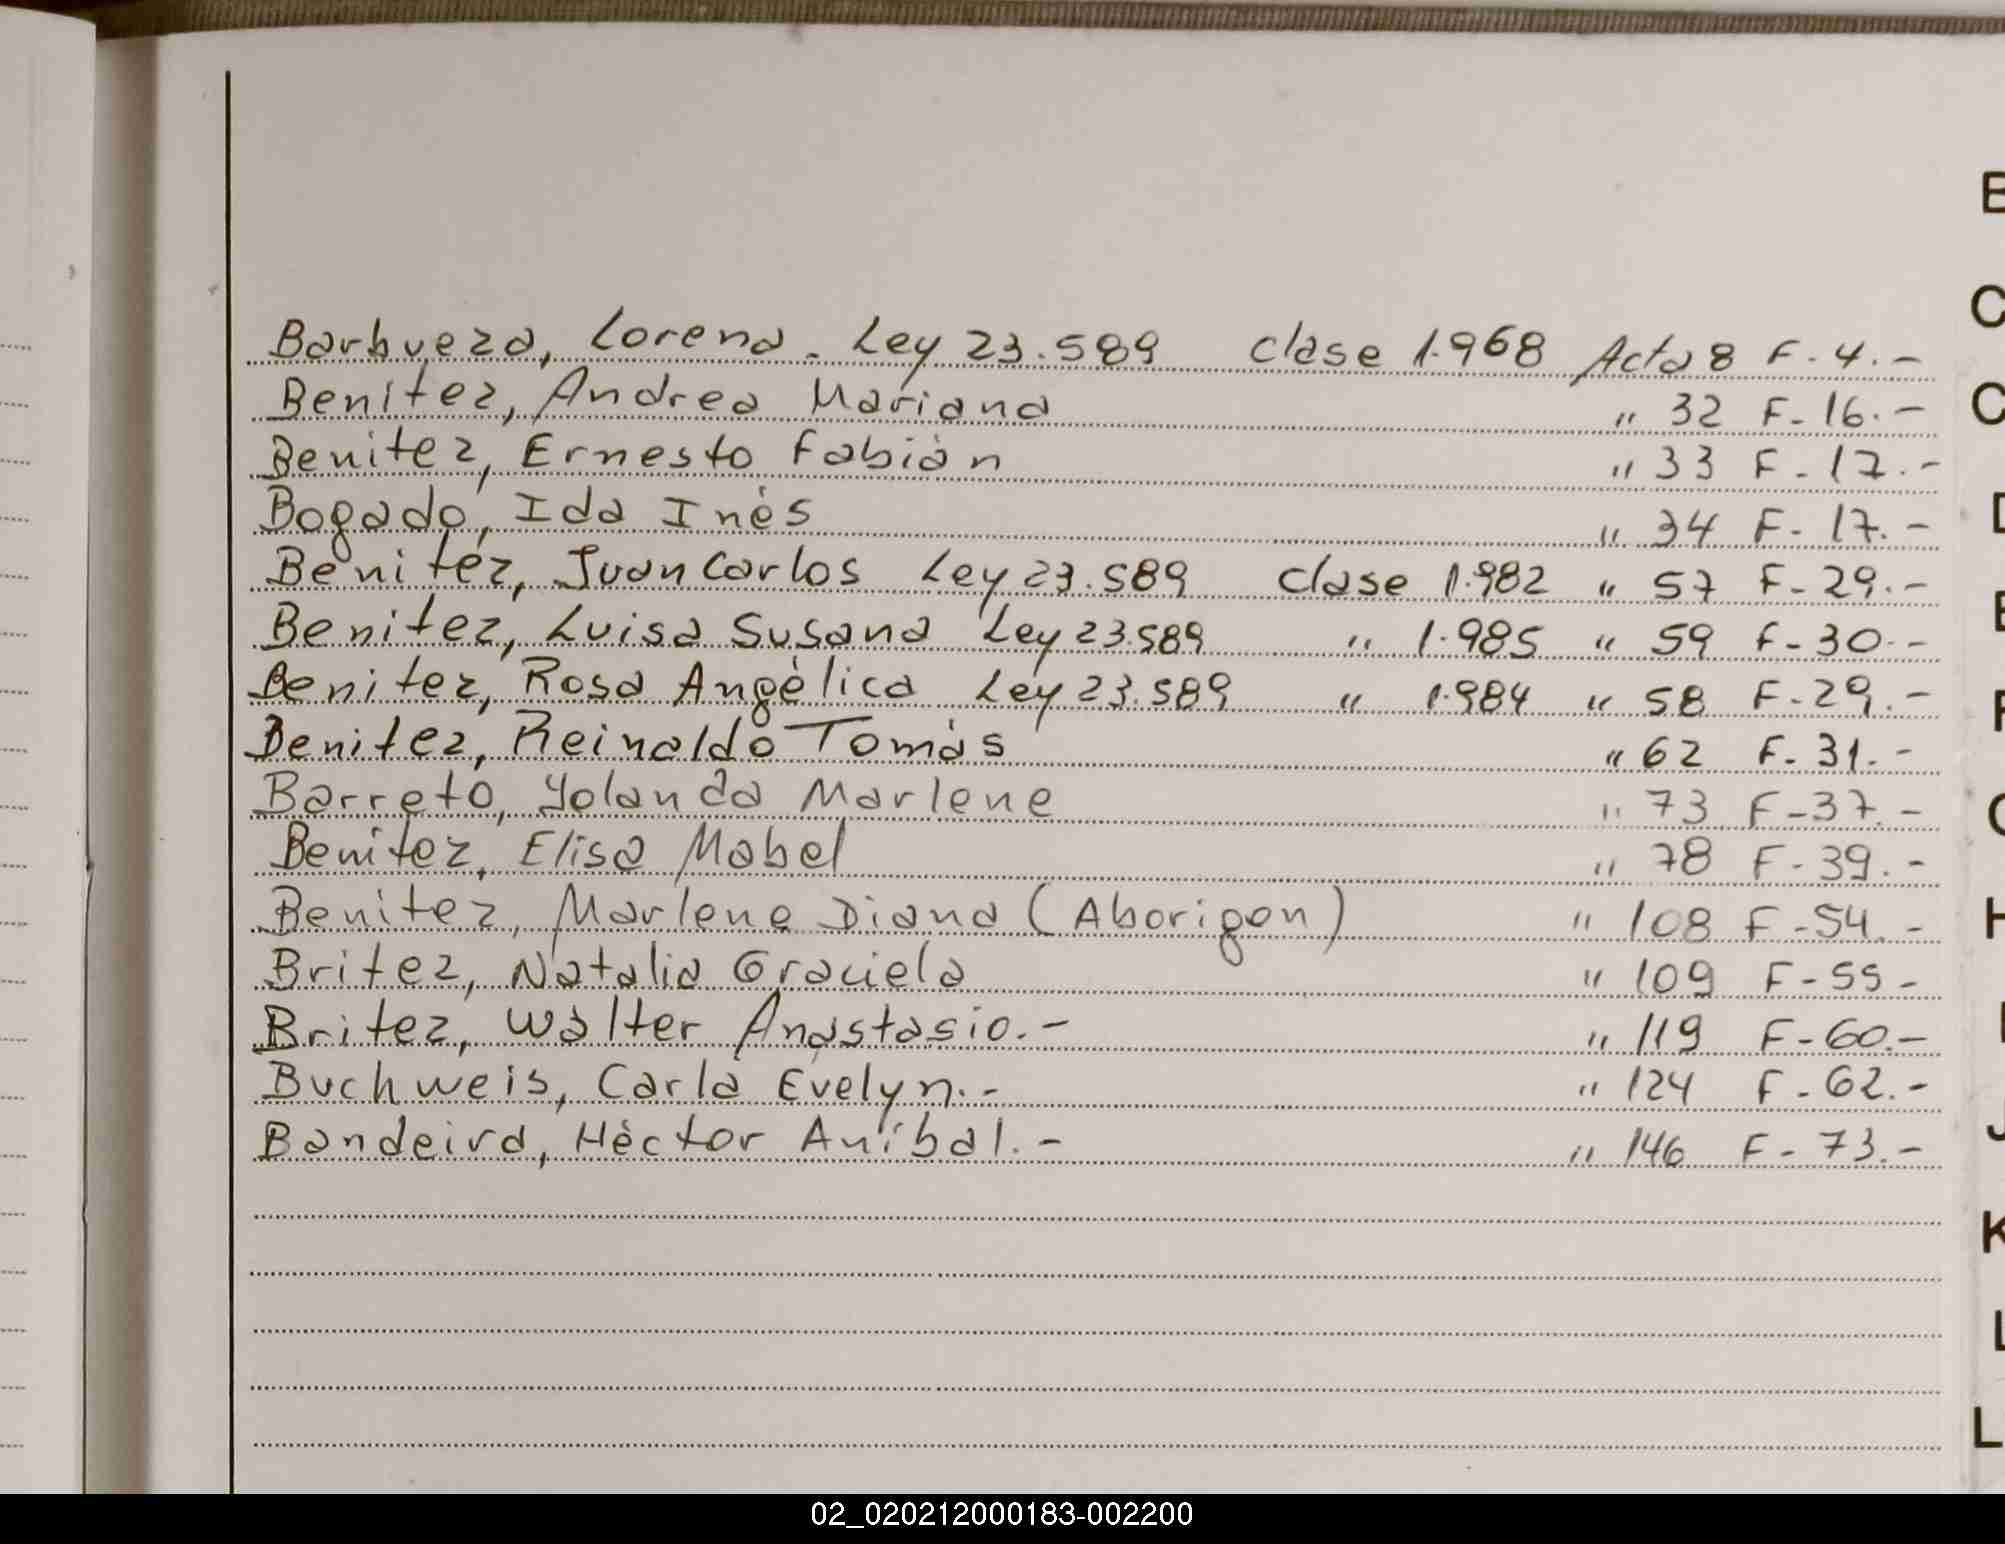 Barbueza, Lorena. Ley 23.589 clase 1.968 Acta 8 F-4.-
Benitez, Andrea Mariana " 32 F-16.-
Benitez, Ernesto Fabián " 33 F-17.-
Bogado, Ida Inés " 34 F-17.-
Benitez, Juan Carlos Ley 23.589 clase 1.982 " 57 F-29.-
Benitez, Luisa Susana Ley 23.589 " 1.985 " 59 F-30.-
Benitez, Rosa Angélica Ley 23.589 " 1.984 " 58 F-29.-
Benitez, Reinaldo Tomás " 62 F-31.-
Barreto, Yolanda Marlene " 73 F-37.-
Benitez, Elisa Mabel " 78 F-39.-
Benitez, Marlene Diana (Aborigen) " 108 F-54.-
Britez, Natalia Graciela " 109 F-55-
Britez, Wálter Anastasio.- " 119 F-60.-
Buchweis, Carla Evelyn.- " 124 F-62.-
Bandeira, Héctor Aníbal.- " 146 F-73.-
B
C
C
D
E
F
G
H
I
J
K
L
L
02_020212000183-002200